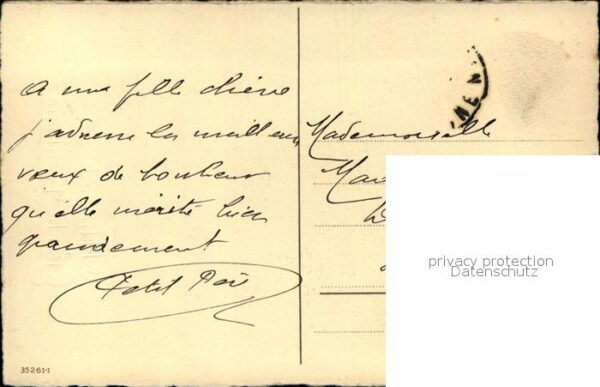 A ma fille chérie
j'adresse les meilleurs
vœux de bonheur
qu'elle mérite bien
grandement
Petit Per
Mademoiselle
Mar
privacy protection
Datenschutz
35261-1